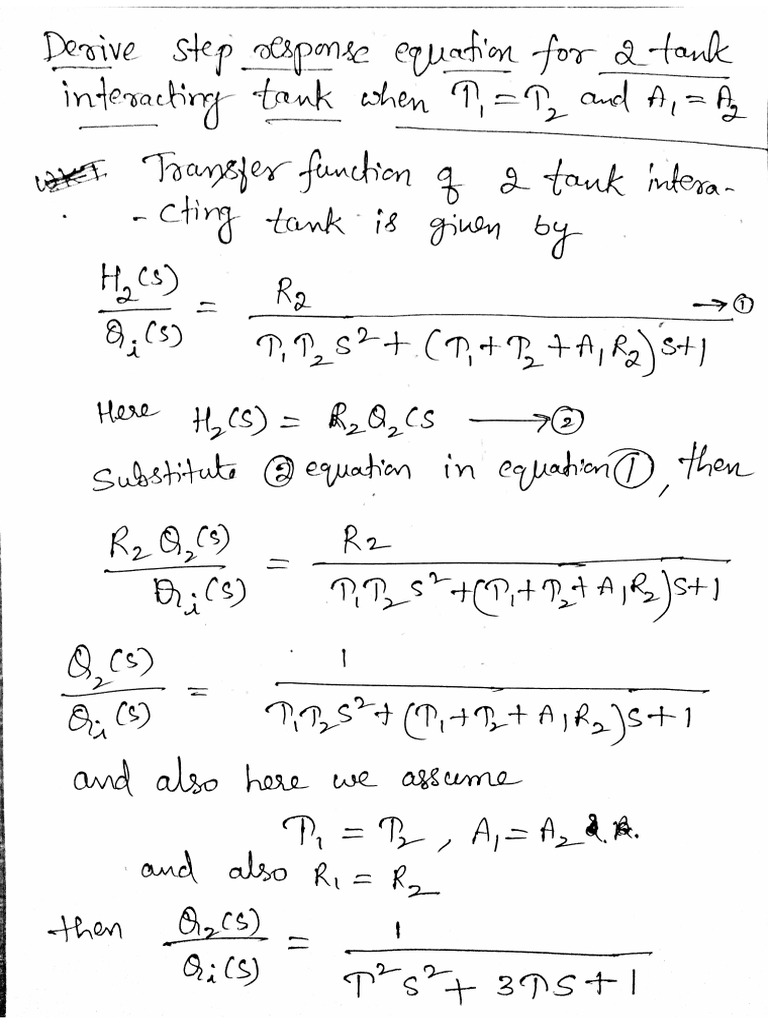 Derive step response equation for 2 tank
interacting tank when τ₁ = τ₂ and A₁ = A₂
Transfer function of 2 tank intera-
- cting tank is given by
H₂(s) / Qᵢ(s) = R₂ / τ₁τ₂s² + (τ₁ + τ₂ + A₁R₂)s + 1 → ①
Here H₂(s) = R₂Q₂(s → ②
Substitute ② equation in equation ①, then
R₂Q₂(s) / Qᵢ(s) = R₂ / τ₁τ₂s² + (τ₁ + τ₂ + A₁R₂)s + 1
Q₂(s) / Qᵢ(s) = 1 / τ₁τ₂s² + (τ₁ + τ₂ + A₁R₂)s + 1
and also here we assume
τ₁ = τ₂, A₁ = A₂
and also R₁ = R₂
then Q₂(s) / Qᵢ(s) = 1 / τ²s² + 3τs + 1